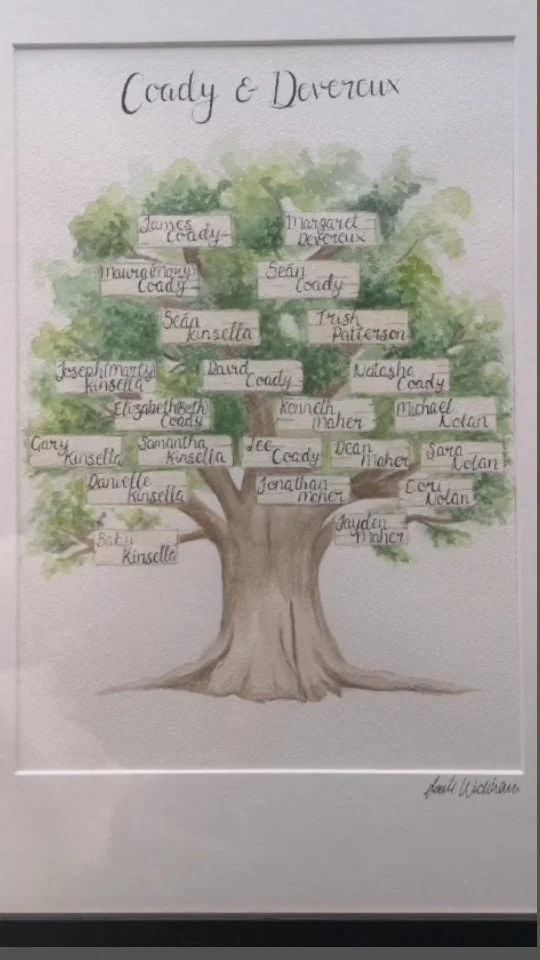 Coady & Devereux
James Coady
Margaret Devereux
Maura(Mary) Coady
Seán Coady
Seán Kinsella
Trish Patterson
Joseph(Marty) Kinsella
David Coady
Natasha Coady
Elizabeth(Beth) Coady
Kenneth Maher
Michael Nolan
Gary Kinsella
Samantha Kinsella
Lee Coady
Dean Maher
Sara Nolan
Danielle Kinsella
Jonathan Maher
Cori Nolan
Jayden Maher
Baby Kinsella